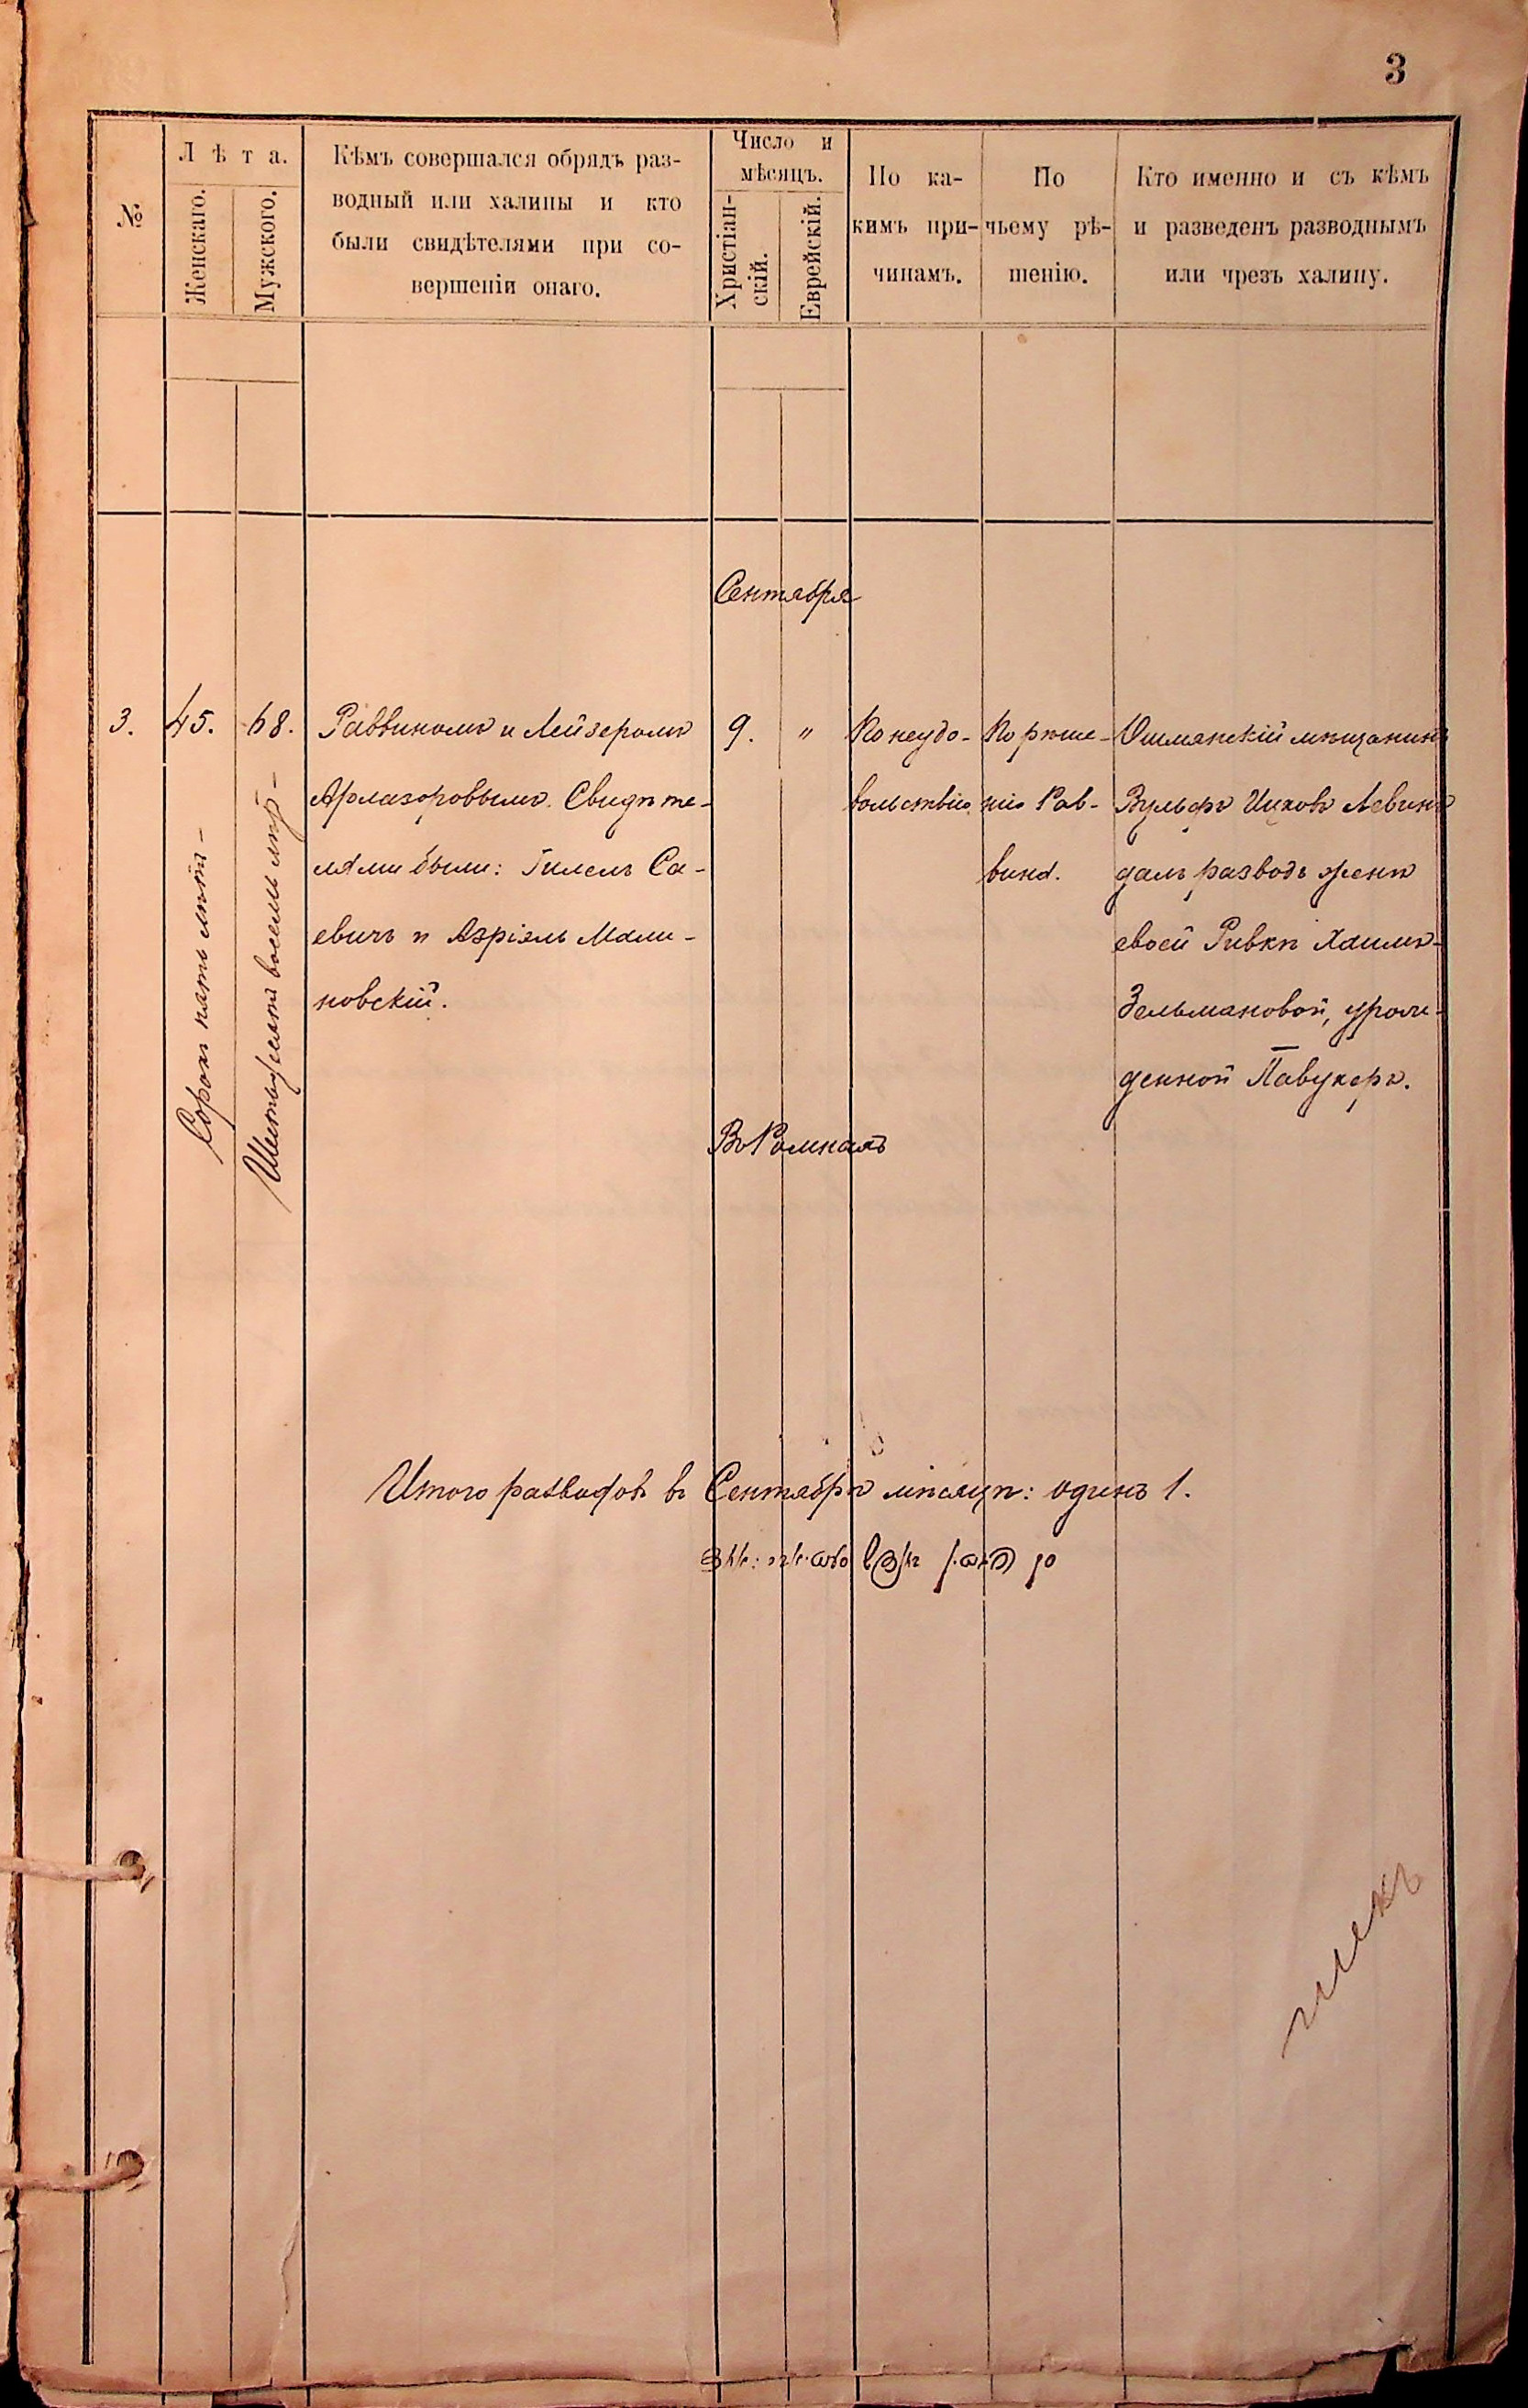 3
№
Лѣта.
Женскаго.
Мужского.
Кѣмъ совершался обрядъ раз-
водный или халицы и кто
были свидѣтелями при со-
вершеніи онаго.
Число и
мѣсяцъ.
Христіан-
скій.
Еврейскій.
По ка-
кимъ при-
чинамъ.
По
чьему рѣ-
шенію.
Кто именно и съ кѣмъ
и разведенъ разводнымъ
или чрезъ халицу.
Сентября
3.
45.
Сорокъ пять лѣтъ -
68.
Шестьдесятъ восемь лѣтъ -
Раввиномъ и Лейзеромъ
Арлазоровымъ. Свидѣте-
лями были: Гилель Са-
евичъ и Азріэль Мали-
новскій.
9.
"
По неудо-
вольствію
По рѣше-
нію Рав-
вина.
Ошмянскій мѣщанинъ
Вульфъ Ицковъ Левинъ
далъ разводъ женѣ
своей Ривкѣ Хаимъ-
Зельмановой, урож-
денной Павукеръ.
Въ Ромнахъ
Итого разводовъ въ Сентябрѣ мѣсяцѣ: одинъ 1.